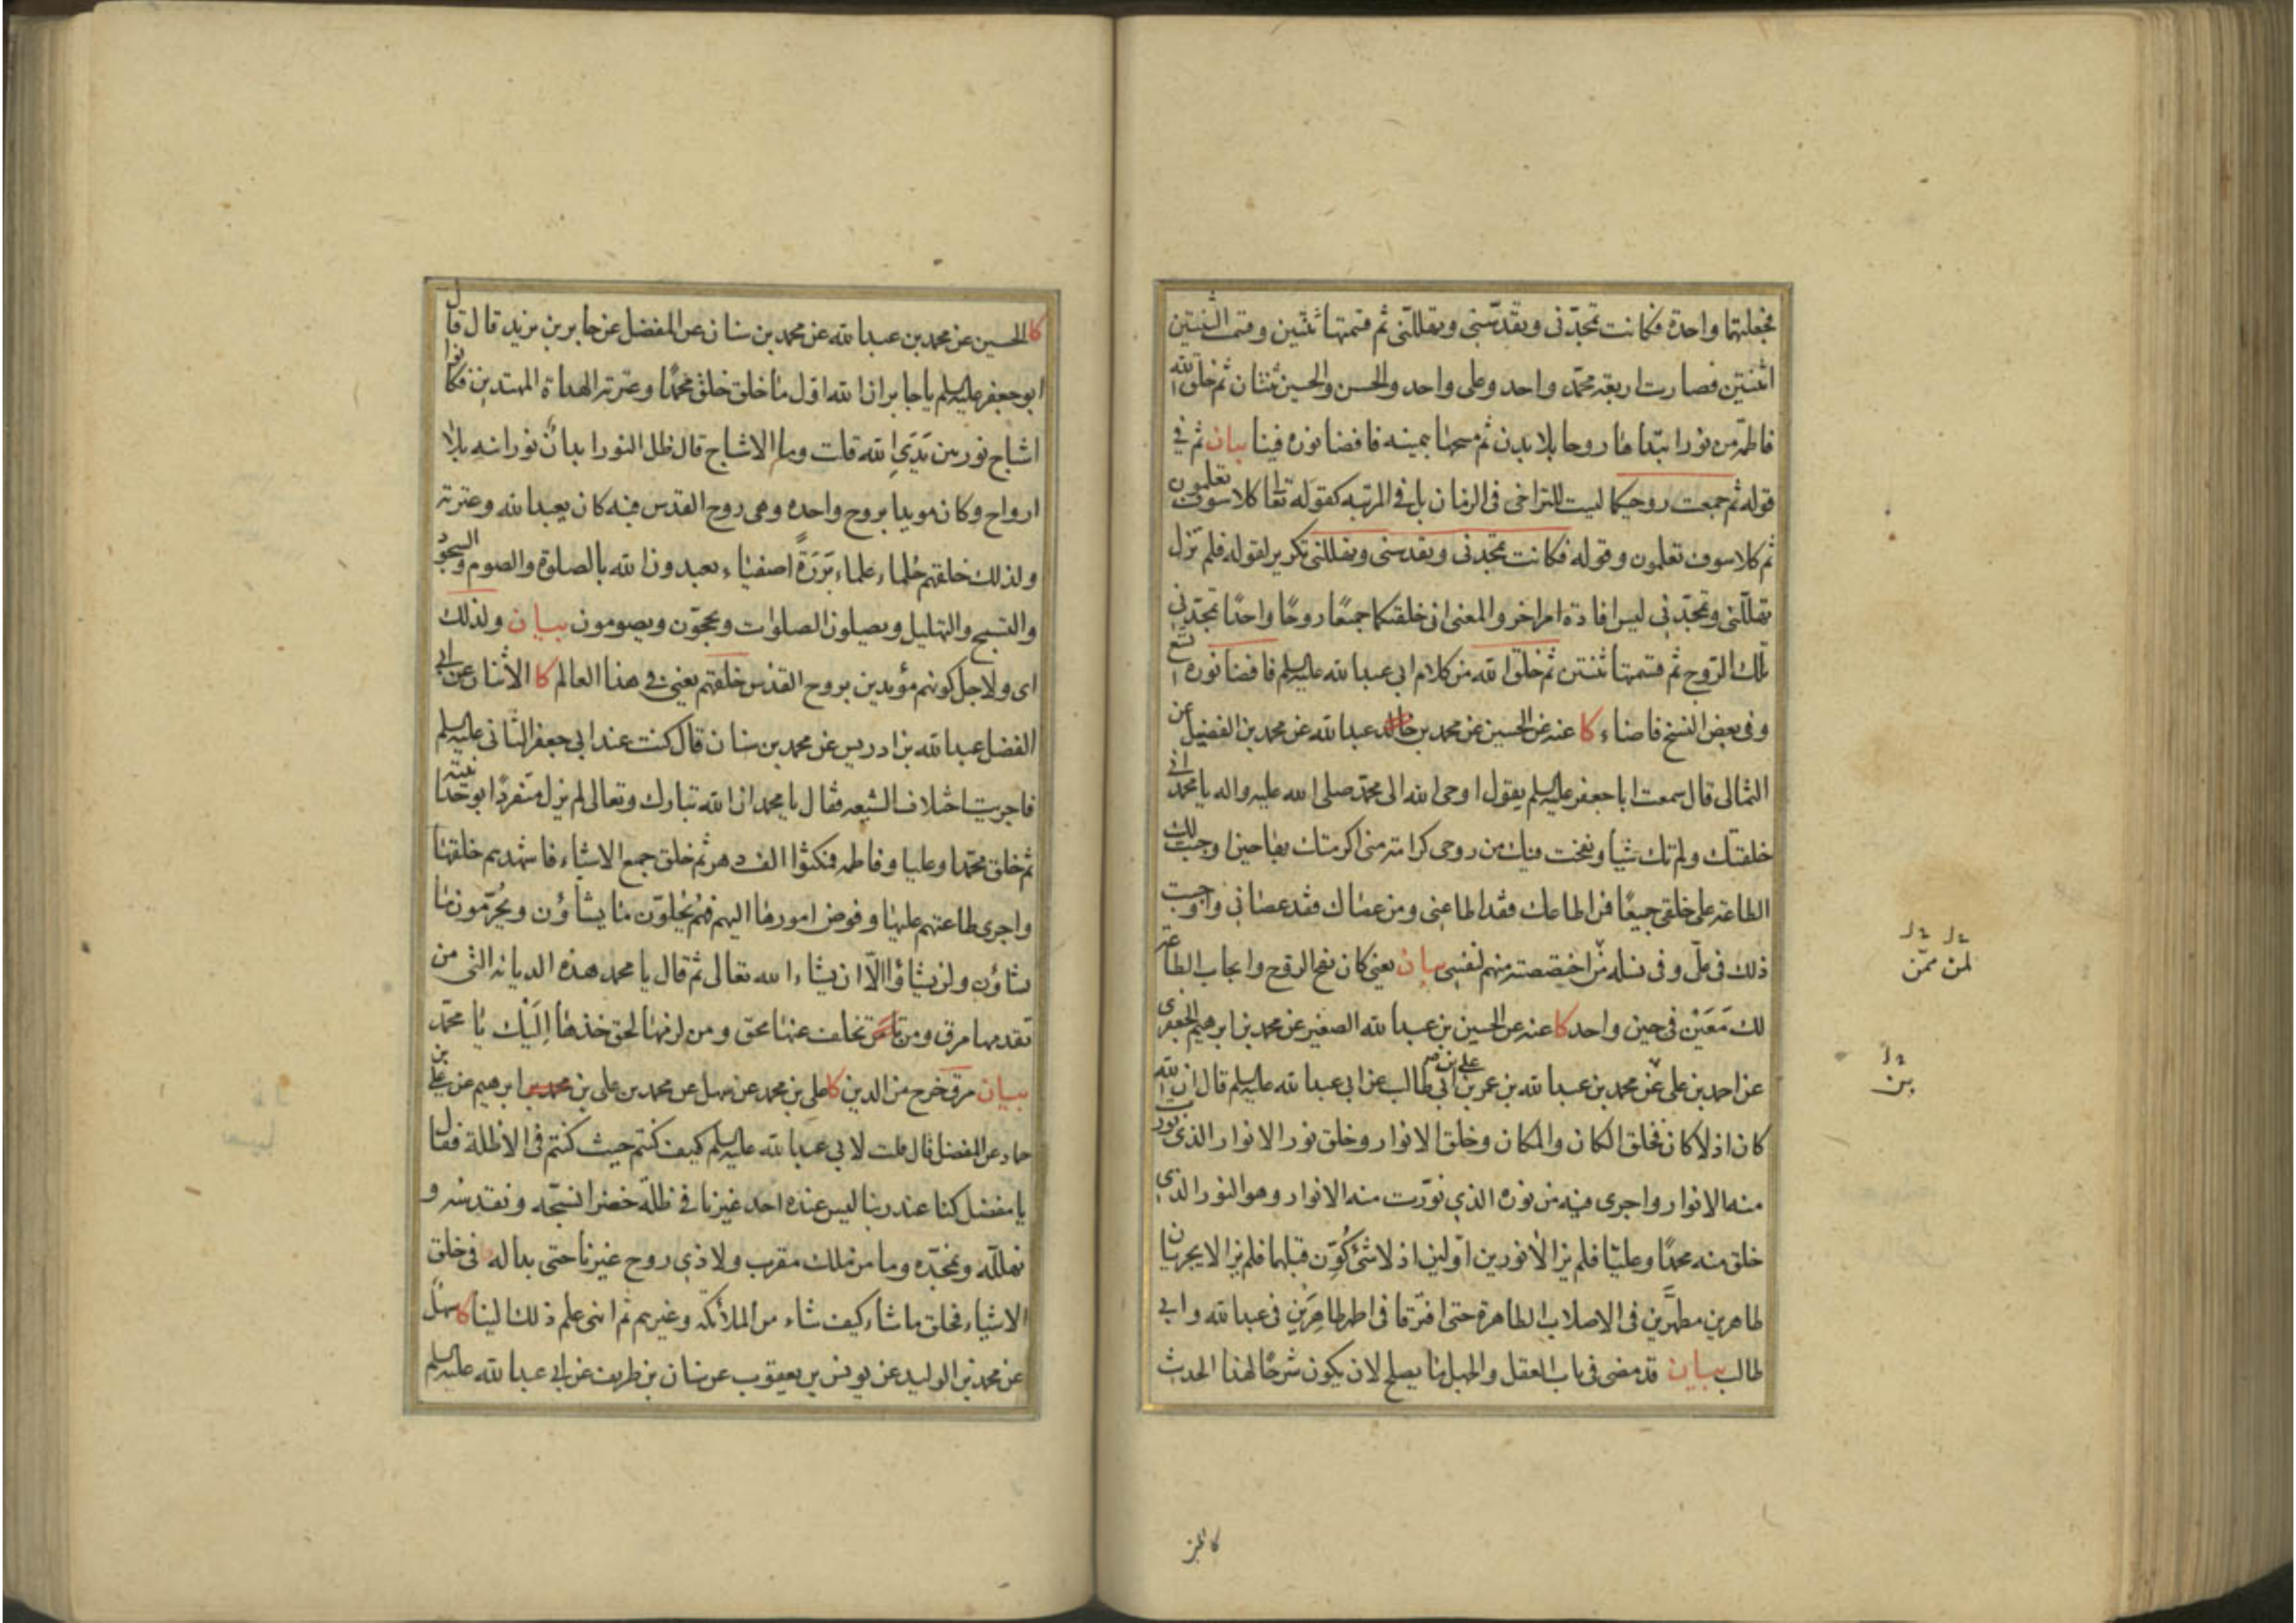 فجعلتهما واحدة فكانت تمجدنى وتقدسنى وتهللنى ثم قسمتها ثنتين وقسمت الثنتين
اثنتين فصارت اربعة محمد واحد وعلى واحد والحسن والحسين ثنتان ثم خلق الله
فاطمة من نور ابتداها روحا بلا بدن ثم مسحنا بيمينه فافضا نوره فينا بيان ثم فى
قوله ثم جمعت روحيكما ليست للتراخى فى الزمان بل فى المرتبه كقوله تعا كلا سوف تعلمون
ثم كلا سوف تعلمون وقوله فكانت تمجدنى وتقدسنى وتهللنى تكرير لقوله فلم تزل
تهللنى وتمجدنى ليس افادة امر اخر والمعنى انى خلقتكما جميعًا روحًا واحدًا تمجدنى
تلك الروح ثم قسمتها ثنتين ثم خلق الله من كلام ابى عبد الله عليه السلم فافضا نوره اتسع
وفى بعض النسخ فاضاء كا عنه عن الحسين عن محمد بن عبد الله عن محمد بن الفضيل عن
الثمالى قال سمعت ابا جعفر عليه السلم يقول اوحى الله الى محمد صلى الله عليه واله يا محمد انى
خلقتك ولم تك شيا ونفخت فيك من روحى كرامة منى اكرمتك بها حين اوجبت لك
الطاعة على خلقى جميعًا فمن اطاعك فقد اطاعنى ومن عصاك فقد عصانى واوجبت
ذلك فى على وفى نسله من اختصصته منهم لنفسى بيان يعنى كان نفخ الروح وايجاب الطاعة
لك مَعَيْن فى حين واحد كا عنه عن الحسين بن عبد الله الصغير عن محمد بن ابرهيم الجعفرى
عن احمد بن على عن محمد بن عبد الله بن عمر بن على بن ابى طالب عن ابى عبد الله عليه السلم قال ان الله
كان اذ لا كان فخلق الكان والمكان وخلق الانوار وخلق نور الانوار الذى نورت
منه الانوار واجرى فيه من نوره الذي نوّرت منه الانوار وهو النور الذى
خلق منه محمدًا وعليًا فلم يزالا نورين اولين اذ لا شئ كُوِّن قبلهما فلم يزالا يجريان
طاهرين مطهَّرين فى الاصلاب الطاهرة حتى افترقا فى اطهر طاهِرَيْن فى عبد الله وابى
طالب بيان قد مضى فى باب العقل والجهل ما يصلح لان يكون شرحًا لهذا الحديث
لمن ممن
بن
كا الحسين
كا الحسين عن محمد بن عبد الله عن محمد بن سنان عن المفضل عن جابر بن يزيد قال قال
ابو جعفر عليه السلم يا جابر ان الله اول ما خلق خلق محمدًا وعترته الهداة المهتدين فكانوا
اشباح نور بين يَدَيِ الله قلت وما الاشباح قال ظل النور ابدان نورانيه بلا
ارواح وكان مويدا بروح واحده وهى روح القدس فبه كان يعبد الله وعترته
ولذلك خلقهم حُلماء علماء بَرَرَةً اصفياء يعبدون الله بالصلوة والصوم والسجود
والتسبيح والتهليل ويصلون الصلوات ويحجون ويصومون بيان ولذلك
اى ولاجل كونهم مؤيدين بروح القدس خلقهم يعنى فى هذا العالم كا الاثنان عن ابى
الفضل عبد الله بن ادريس عن محمد بن سنان قال كنت عند ابى جعفر الثانى عليه السلم
فاجريت اختلاف الشيعه فقال يا محمد ان الله تبارك وتعالى لم يزل متفردًا بوحدانيته
ثم خلق محمدا وعليا وفاطمه فمكثوا الف دهر ثم خلق جميع الاشياء فاشهدهم خلقها
واجرى طاعتهم عليها وفوض امورها اليهم فهُم يُحلّون ما يشاؤن ويُحرّمون ما
يشاؤن ولن يشاؤا الّا ان يشاء الله تعالى ثم قال يا محمد هذه الديانه التى من
تقدمها مرق ومن تخلف عنها محق ومن لزمها لحق خذها اِلَيْك يا محمّد
بيان مرق خرج من الدين كا على بن محمد عن سهل عن محمد بن على بن ابرهيم عن على بن
حماد عن المفضل قال قلت لابى عبد الله عليه السلم كيف كنتم حيث كنتم فى الاظلة فقال
يا مفضل كنا عند ربنا ليس عنده احد غيرنا فى ظلّة خضرا نسبّحه ونقدسه و
نهلله ونمجّده وما من ملك مقرب ولا ذي روح غيرنا حتى بدا له فى خلق
الاشياء فخلق ما شاء كيف شاء من الملائكه وغيرهم ثم انهى علم ذلك الينا كا سهل
عن محمد بن الوليد عن يونس بن يعقوب عن سنان بن طريف عن ابى عبد الله عليه السلم